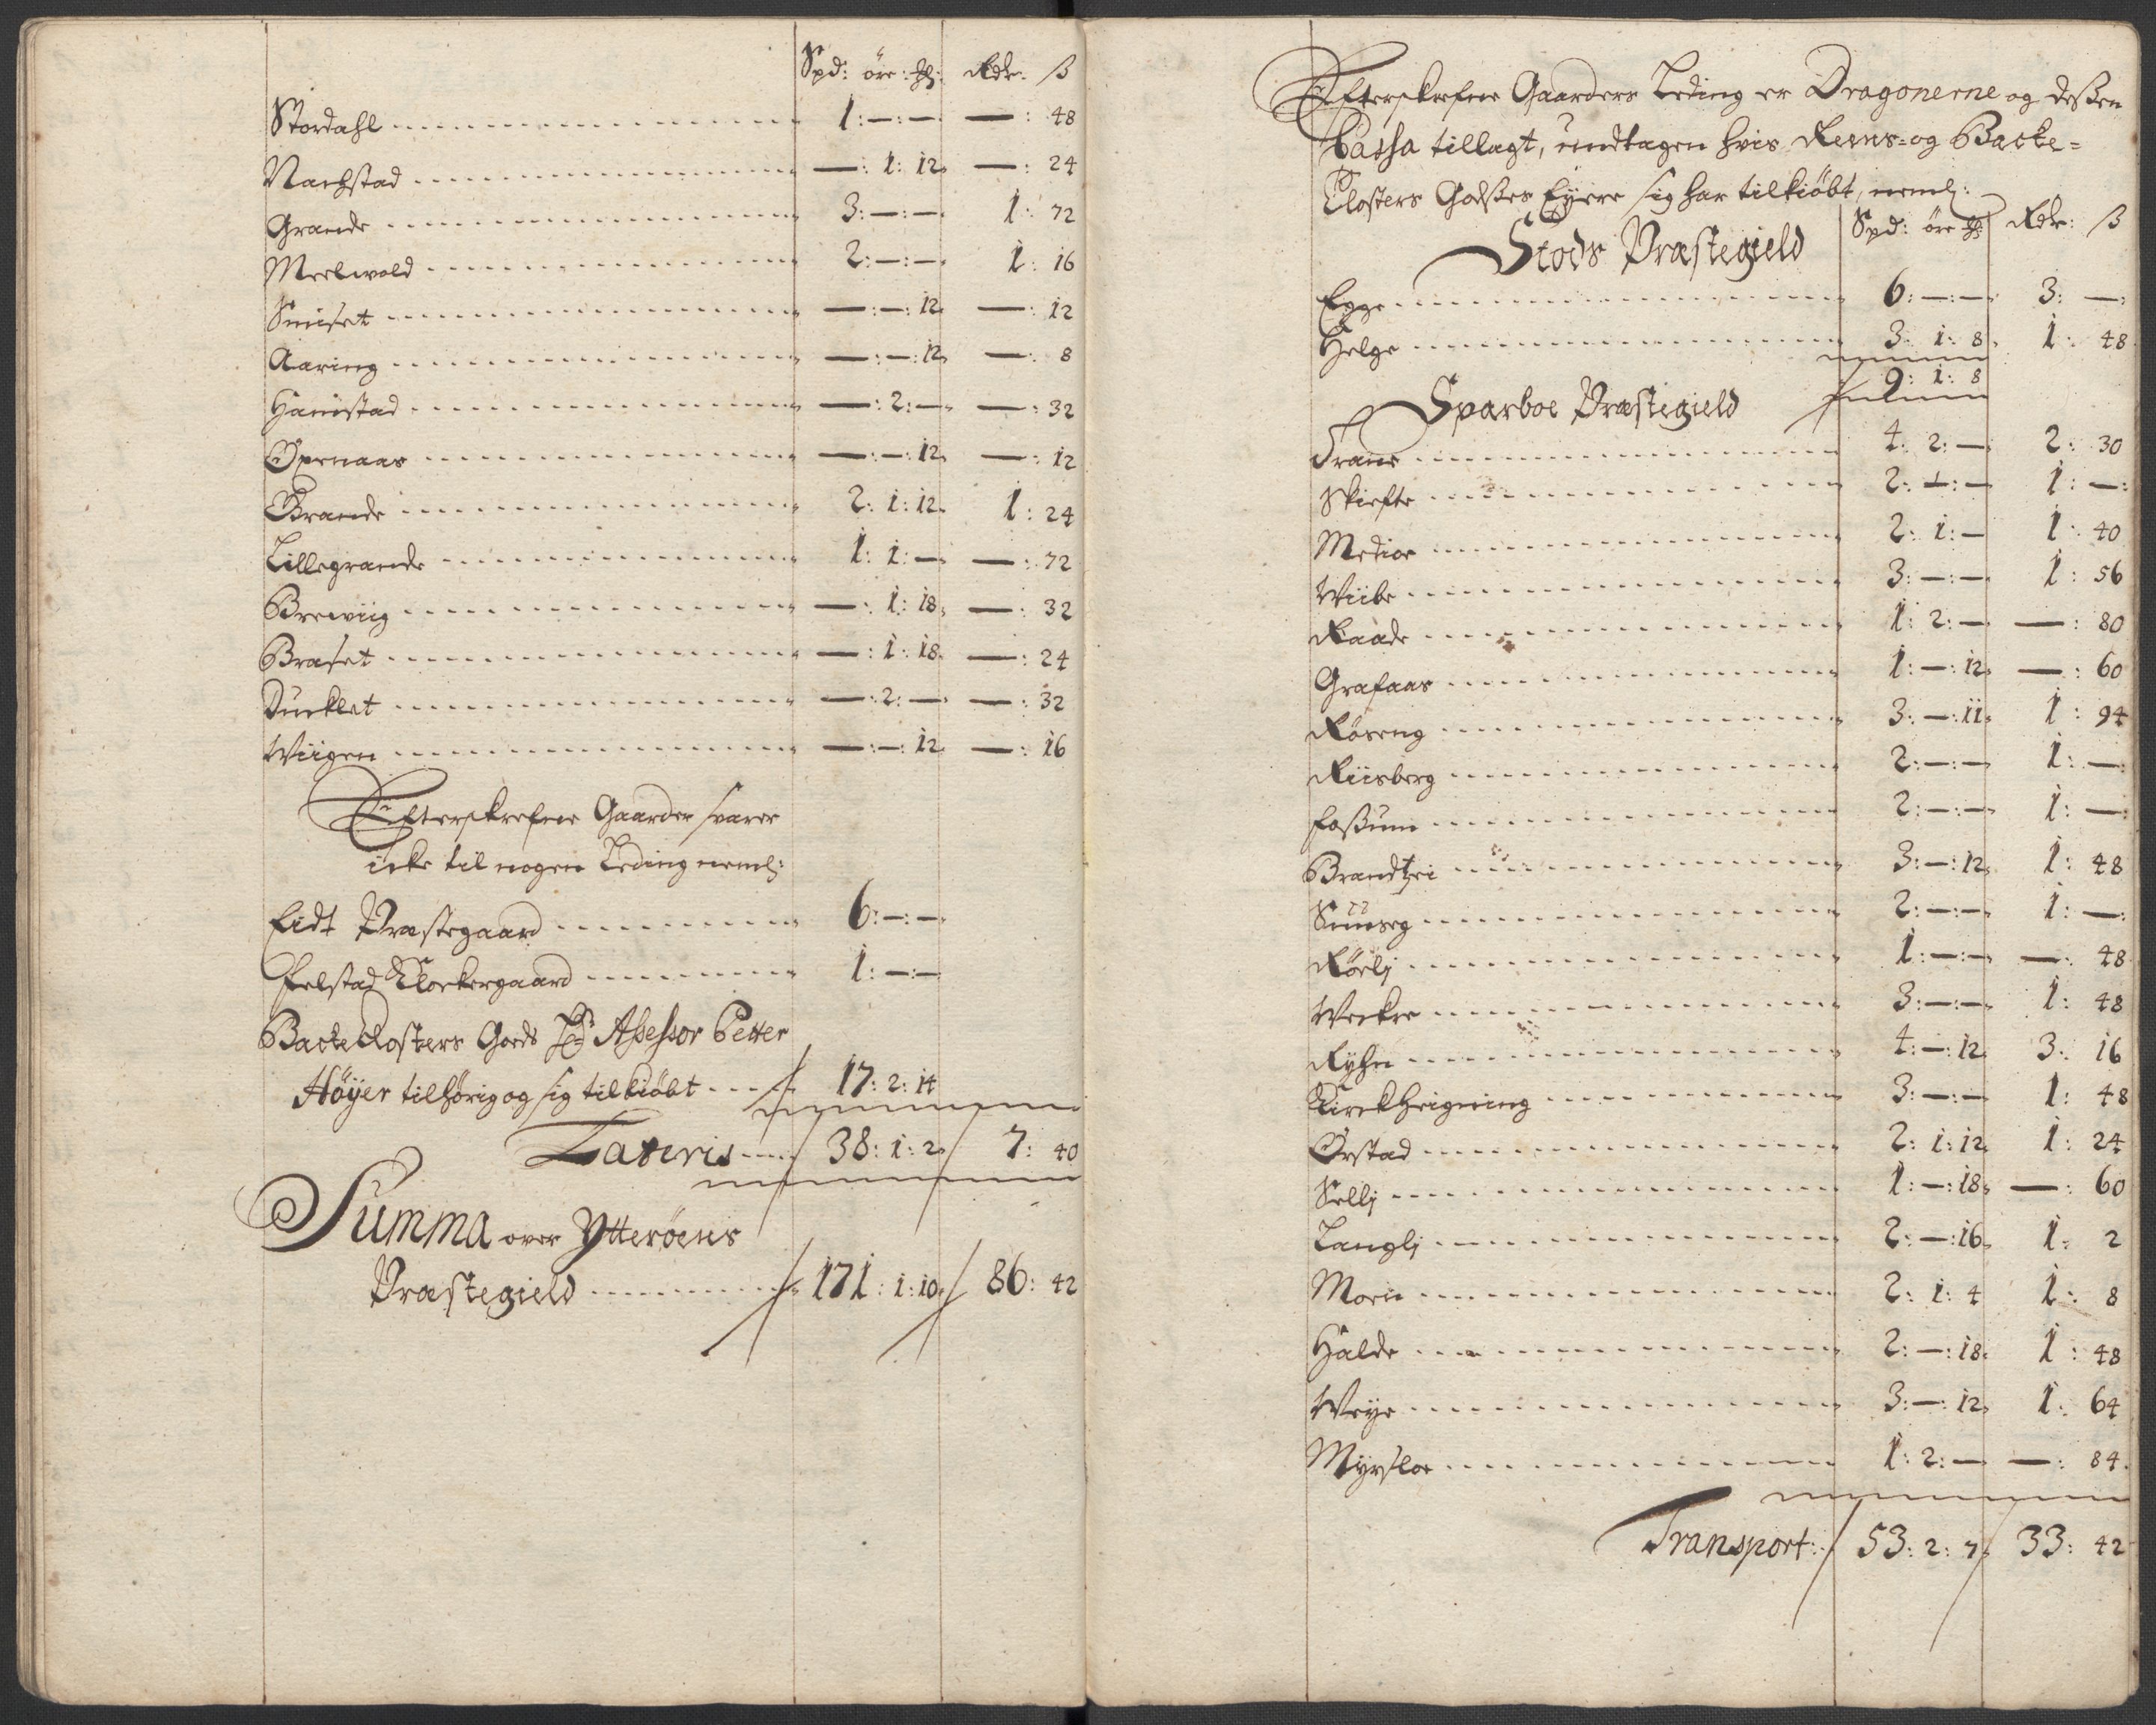 Spd: öre: ℔: Rdr: ß
Stordahl 1:—:— —: 48
Nachstad —: 1: 12 —: 24
Grande 3:—:— 1: 72
Meelwold 2:—:— 1: 16
Smiset —:—: 12 —: 12
Aaring —:—: 12 —: 8
Hamstad —: 2:— —: 32
Opnaas —:—: 12 —: 12
Grande 2: 1: 12 1: 24
Lillegrande 1: 1:— —: 72
Brewiig —: 1: 18 —: 32
Braset —: 1: 18 —: 24
Duncklet —: 2:— —: 32
Wiigen —:—: 12 —: 16
Efterskrefne Gaarder svarer
icke til nogen Leding neml:
Eidt Præstegaard 6:—:—
Felstad Klockergaard 1:—:—
Backe Closters Gods Hr Assessor Petter
Höyer tilhörig og sig tilkiöbt 17: 2: 14
Lateris 38: 1: 2 7: 40
Summa over Ytteröens
Præstegield 171: 1: 10 86: 42
Efterskrefne Gaarders Leding er Dragonerne og dessen
Cassa tillagt, undtagen hvis Reens- og Backe-
Closters Godses Eyere sig har tilkiöbt, neml:
Spd: öre ℔ Rdr: ß
Stods Præstegield
Egge 6:—:— 3: —:
Helge 3: 1: 8 1: 48
9: 1: 8
Sparboe Præstegield
Trane 4: 2:— 2: 30
Skiefte 2:—:— 1: —:
Medioe 2: 1:— 1: 40
Wiibe 3:—:— 1: 56
Raade 1: 2:— —: 80
Grafaas 1:—: 12 —: 60
Röseng 3:—: 11 1: 94
Riisberg 2:—:— 1: —:
Fossum 2:—:— 1: —:
Brandtzei 3:—: 12 1: 48
2:—:— 1: —:
Rörlj 1:—:— —: 48
Weckre 3:—:— 1: 48
Ryhn 4:—: 12 3: 16
Kirckheigning 3:—:— 1: 48
Örstad 2: 1: 12 1: 24
Sellj 1:—: 18 —: 60
Langlj 2:—: 16 1: 2
Moen 2: 1: 4 1: 8
Halde 2:—: 18 1: 48
Weye 3:—: 12 1: 64
Myrsloe 1: 2:— —: 84
Transport: 53: 2: 7 33: 42